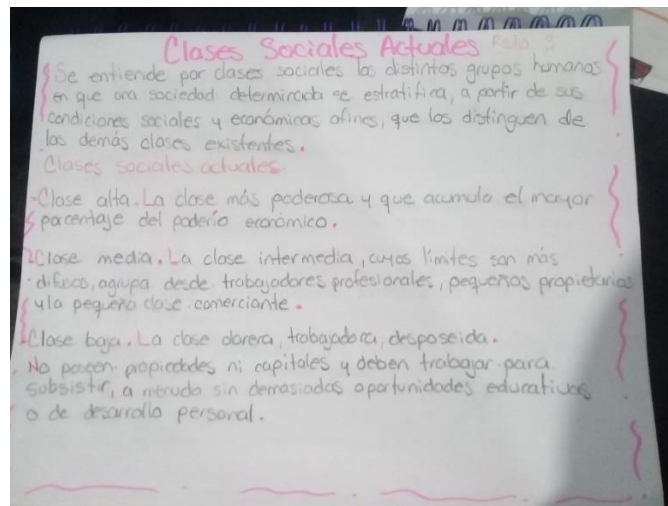 Clases Sociales Actuales
Se entiende por clases sociales los distintos grupos humanos
en que una sociedad determinada se estratifica, a partir de sus
condiciones sociales y económicas afines, que los distinguen de
las demás clases existentes.
Clases sociales actuales
-Clase alta. La clase más poderosa y que acumula el mayor
porcentaje del poderío económico.
Clase media. La clase intermedia, cuyos límites son más
difusos, agrupa desde trabajadores profesionales, pequeños propietarios
y la pequeña clase comerciante.
Clase baja. La clase obrera, trabajadora, desposeida.
No poseen propiedades ni capitales y deben trabajar para
subsistir, a menudo sin demasiadas oportunidades educativas
o de desarrollo personal.